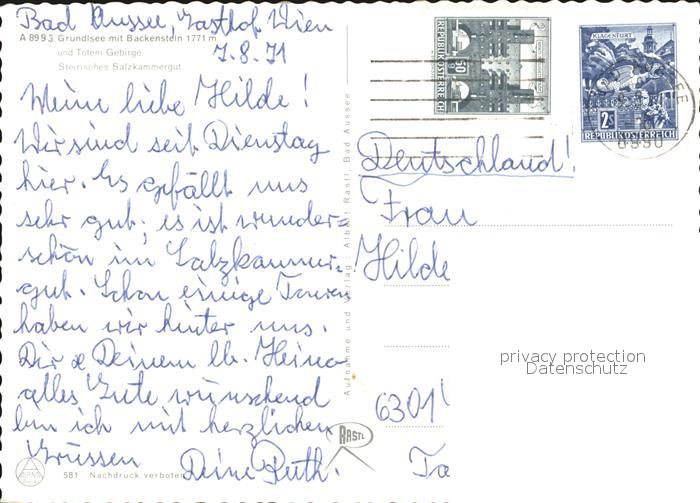 Bad Aussee, Gasthof Wien
A 8993 Grundlsee mit Backenstein 1771 m
und Totem Gebirge.
Steirisches Salzkammergut
7.8.71
Meine liebe Hilde!
Wir sind seit Dienstag
hier. Es gefällt uns
sehr gut; es ist wunder=
schön im Salzkammer-
gut. Schon einige Touren
haben wir hinter uns.
Dir & Deinem lb. Heino
alles Gute wünschend
bin ich mit herzlichen
Grüssen Deine Ruth.
581 Nachdruck verboten
Aufnahme und Verlag: Albert Rastl, Bad Aussee
RASTL
REPUBLIK ÖSTERREICH
50
KLAGENFURT
2
REPUBLIK ÖSTERREICH
8990
Deutschland!
Frau
Hilde
privacy protection
Datenschutz
6301
Ta